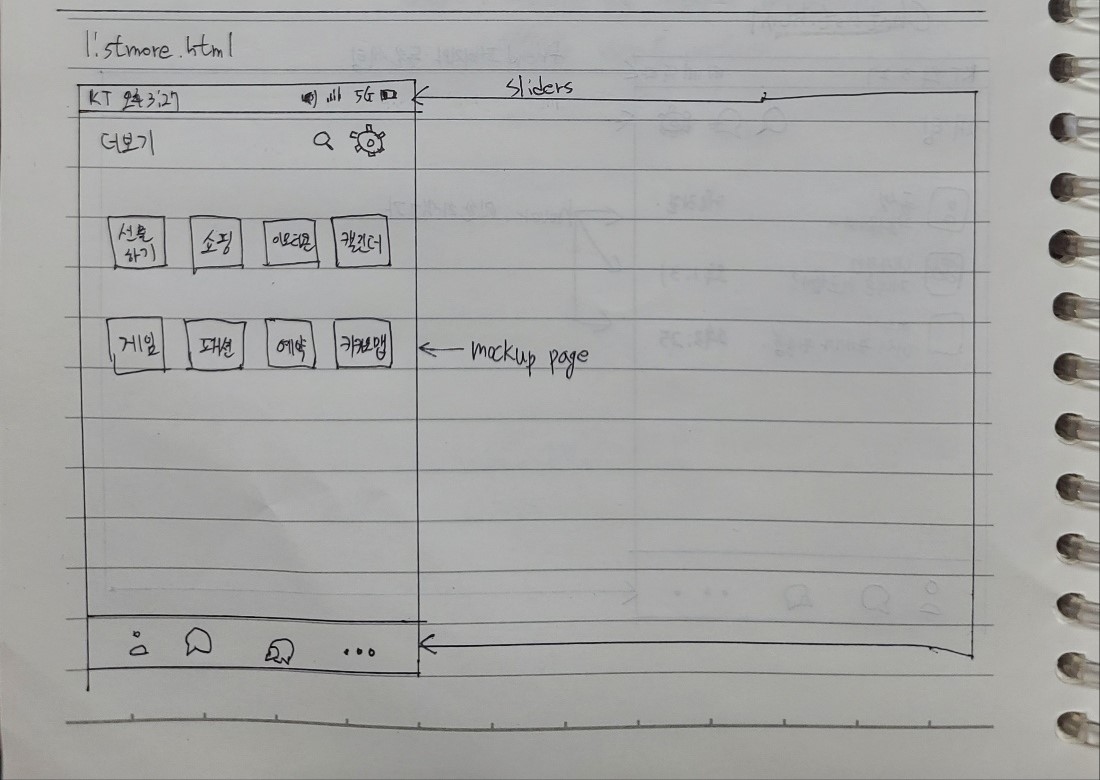 listmore.html
KT 오후 3:27 5G
sliders
더보기
선물
하기
쇼핑
이모티콘
캘린더
게임
패션
예약
카카오맵
mockup page